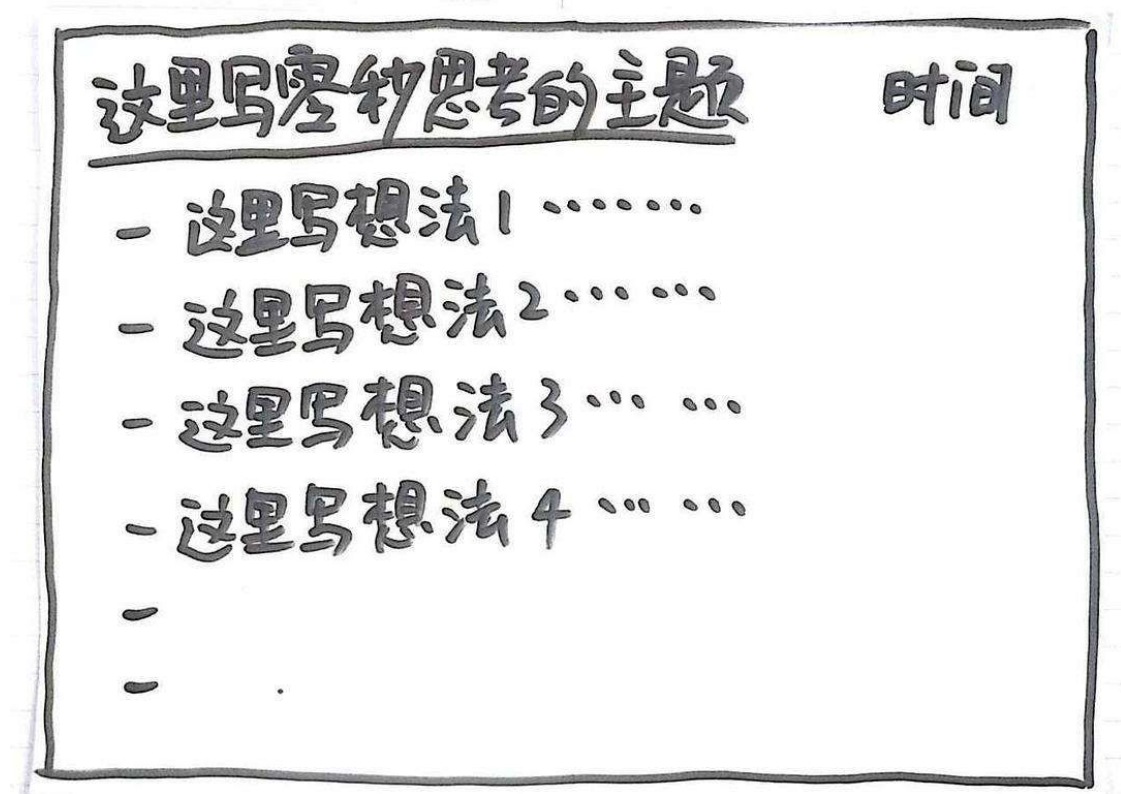 这里写零秒思考的主题 时间
- 这里写想法1 ·······
- 这里写想法2 ··· ···
- 这里写想法3 ··· ···
- 这里写想法4 ··· ···
-
-